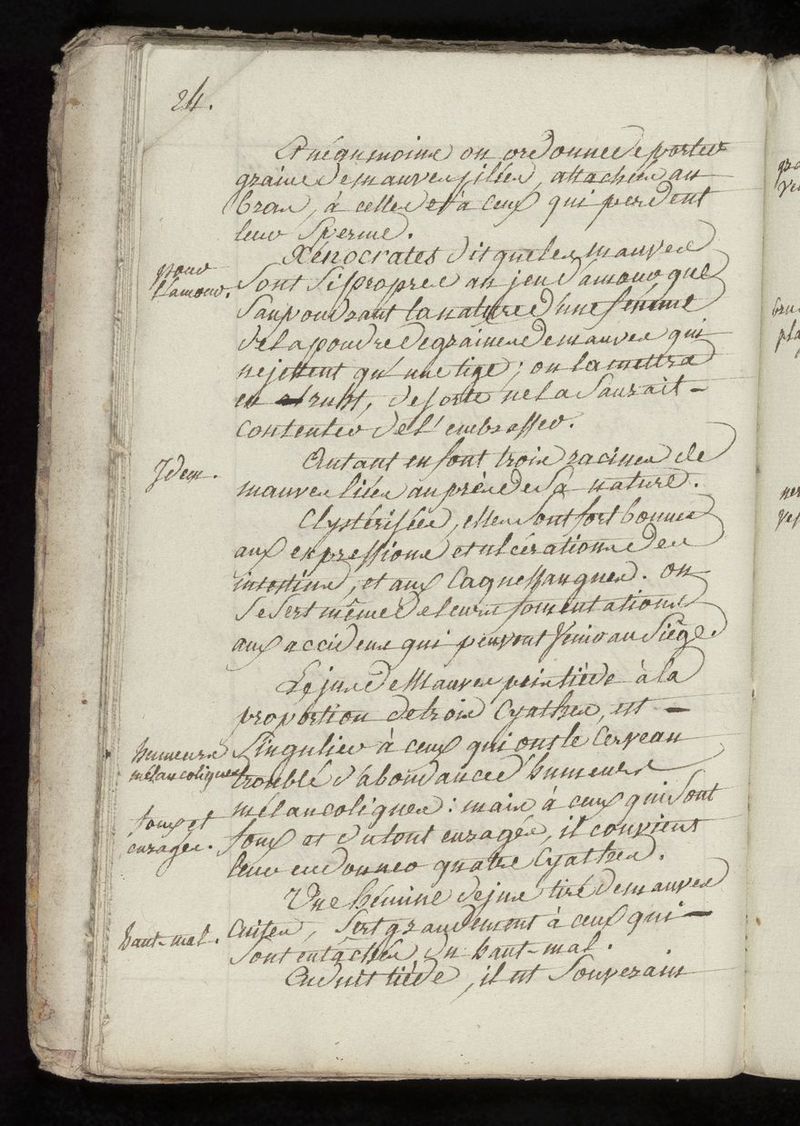 24.
Et néanmoins on ordonne de porter
graine de mauves liées, attachées au
bras, à celles et à ceux qui perdent
leur Sperme.
Xénocrates dit que les mauves
pour
l'amour.
sont si propres au jeu d'amour que
saupoudrant la nature d'une femme
de la poudre de graines de mauves qui
ne jettent qu'une tige; on la mettra
en ruht, de sorte ne la saurait
contenter de l'embrasser.
Idem.
Autant en font trois racines de
mauves liées auprès de sa nature.
Clystérisées, elles sont fort bonnes
aux expressions et ulcérations des
intestins, et aux Caquessangues. on
se sert même de leurs fomentations
aux accidens qui peuvent venir au Siège.
Le jus de Mauves pris tiède à la
proportion de trois Cyathes, est
humeurs
mélancoliques
singulier à ceux qui ont le Cerveau
troublé d'abondance d'humeurs
mélancoliques: mais à ceux qui sont
foux et
enragés.
foux et du tout enragés, il convient
leur en donner quatre Cyathes.
Une hémine de jus tiré de mauves
haut-mal.
Cuites, sert grandement à ceux qui
sont entâchés du haut-mal.
Enduit tiède, il est Souverain